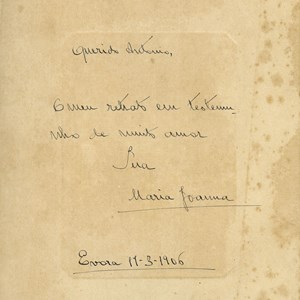 Querido António,
O meu retrato em testemu-
nho de muito amor
Sua
Maria Joanna
Evora 17-3-1906